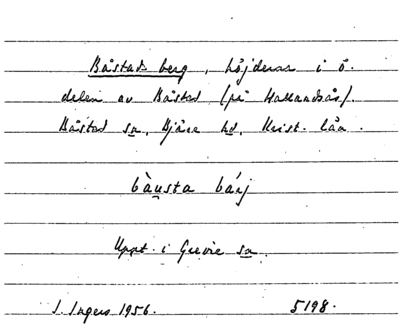 Båstads berg, höjderna i ö.
delen av Båstad (på Hallandsås).
Båstad sn, Bjäre hd, Krist. län.
bàu̯sta bárj
Uppt. i Grevie sn.
I. Ingers 1956. 5198.